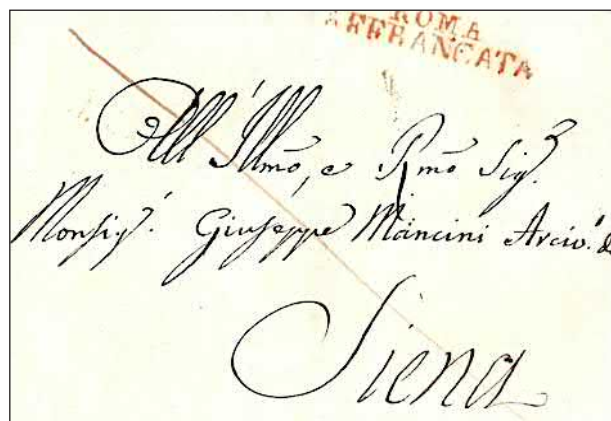 ROMA
AFFRANCATA
All' Illmo, e Rmo Sigr.
Monsigr. Giuseppe Mancini Arciv. di
Siena